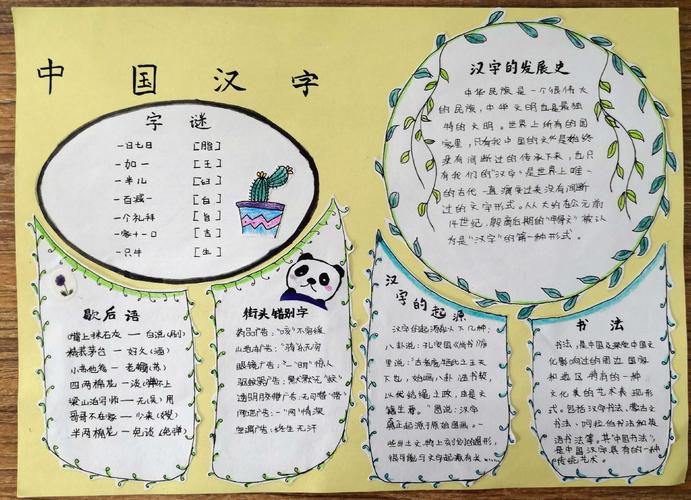 中国汉字
字谜
一日七日 [脂]
一加一 [王]
一半儿 [臼]
一百减一 [白]
一个礼拜 [旨]
一家十一口 [吉]
一只牛 [生]
汉字的发展史
中华民族是一个很伟大
的民族,中华文明也是最独
特的文明。世界上所有的国
家里,只有我中国的文化是始终
没有间断过的传承下来,也只
有我们的“汉字”是世界上唯一
的古代一直演变过来没有间断
过的文字形式。从大约在公元前
14世纪,殷商后期的“甲骨文”被认
为是“汉字”的第一种形式。
歇后语
墙上抹石灰——白说(刷)
精装茅台——好久(酒)
四两棉花——谈(弹)不上
梁山泊军师——无(吴)用
半两棉花——免谈(免弹)
街头错别字
药品广告:“咳”不容缓
山地车广告:“骑”乐无穷
眼镜广告:一“明”惊人
驱蚊器广告:默默无“蚊”
透明胶带广告:无可“带”
网吧广告:一“网”情深
空调广告:终生无汗
汉字的起源
汉字的起源有以下几种:
八卦说:孔安国《尚书》序
里说:“古者庖牺氏之王天
下也,始画八卦,造书契,
以代结绳之政,由是文
籍生焉。”图说:汉字
真正起源于原始图画。一
些出土文物上刻划的图形,
很可能与文字起源有关
书法
书法,是中国及深受中国文
化影响过的周边国家
和地区特有的一种
文化美的艺术表现形
式。包括汉字书法、蒙古文
书法、阿拉伯书法和英
语书法等。其“中国书法”,
是中国汉字具有的一种
传统艺术。